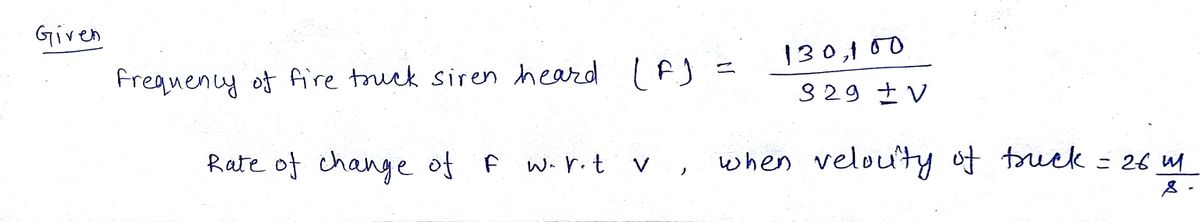 Given
Frequency of fire truck siren heard (F) = 130,100 / 329 ± V
Rate of change of F w.r.t v, when velocity of truck = 26 m/s.